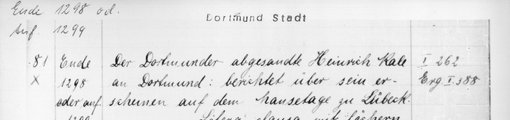 Ende 1298 od.
Anf. 1299
Dortmund Stadt
81 Ende Der Dortmunder abgesandte Heinrich Kale I 262
X 1298 an Dortmund: berichtet über sein er- Erg I 388
oder auf scheinen auf dem hansetage zu Lübeck.
1299 mit